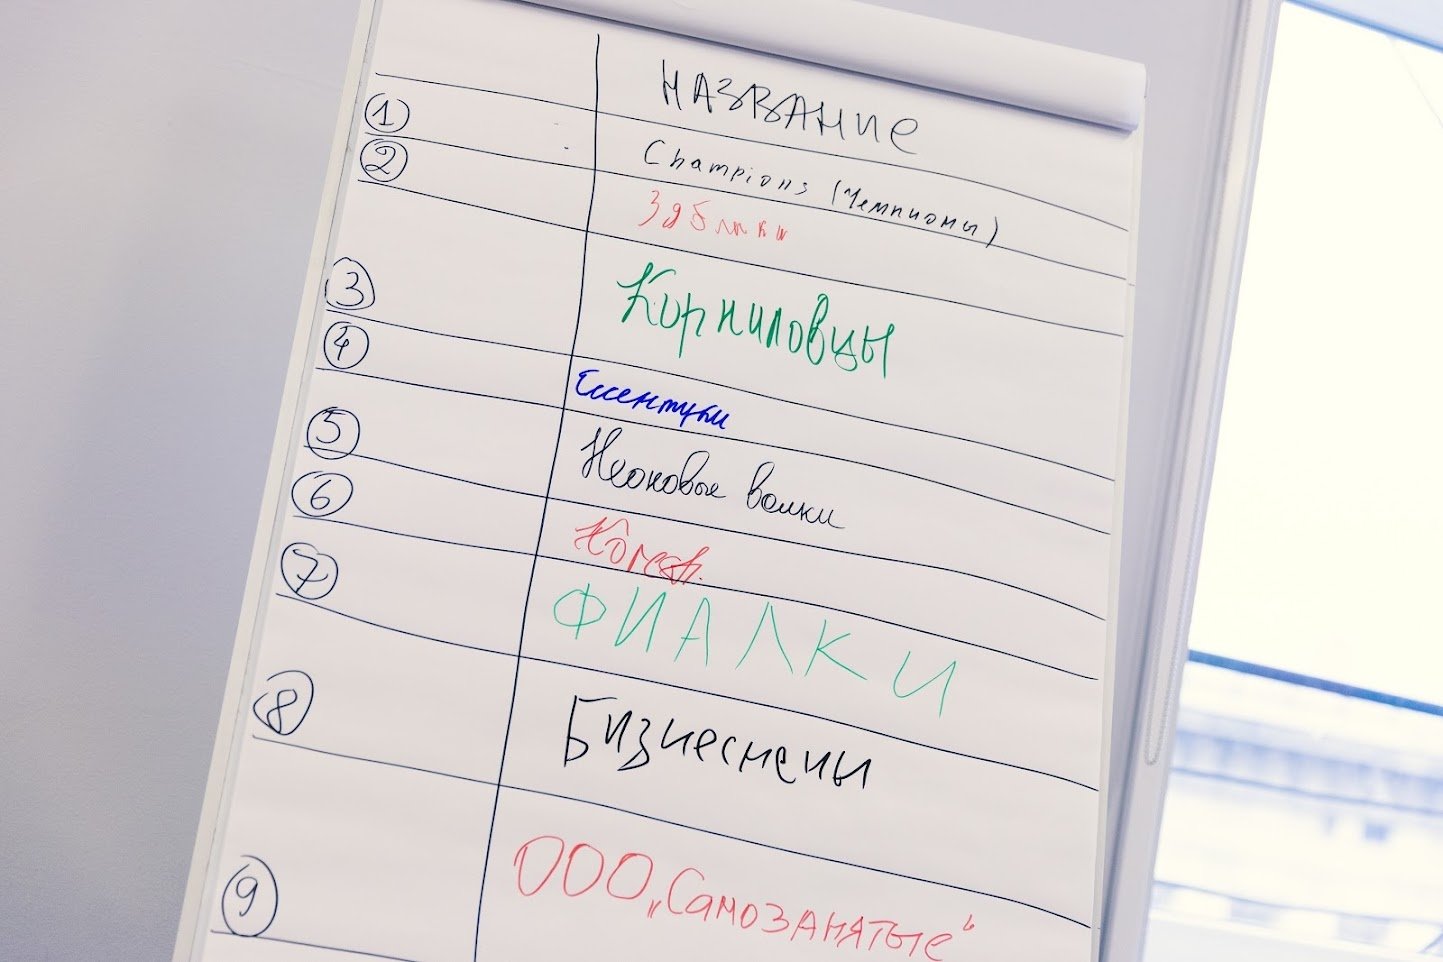 НАЗВАНИЕ
1 Champions (Чемпионы)
2 Зяблики
3 Корниловцы
4 Ессентуки
5 Неоновые волки
6
7 ФИАЛКИ
8 Бизнесмены
9 ООО „Самозанятые“